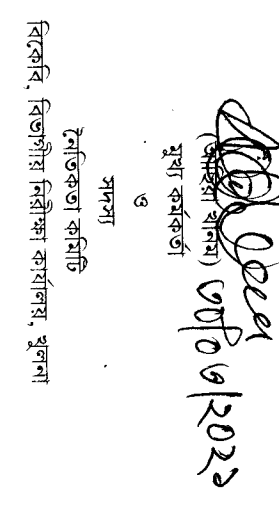 খানম) ০৩|২০২১
মুখ্য কর্মকর্তা
ও
সদস্য
নৈতিকতা কমিটি
বিকেবি, বিভাগীয় নিরীক্ষা কার্যালয়, খুলনা